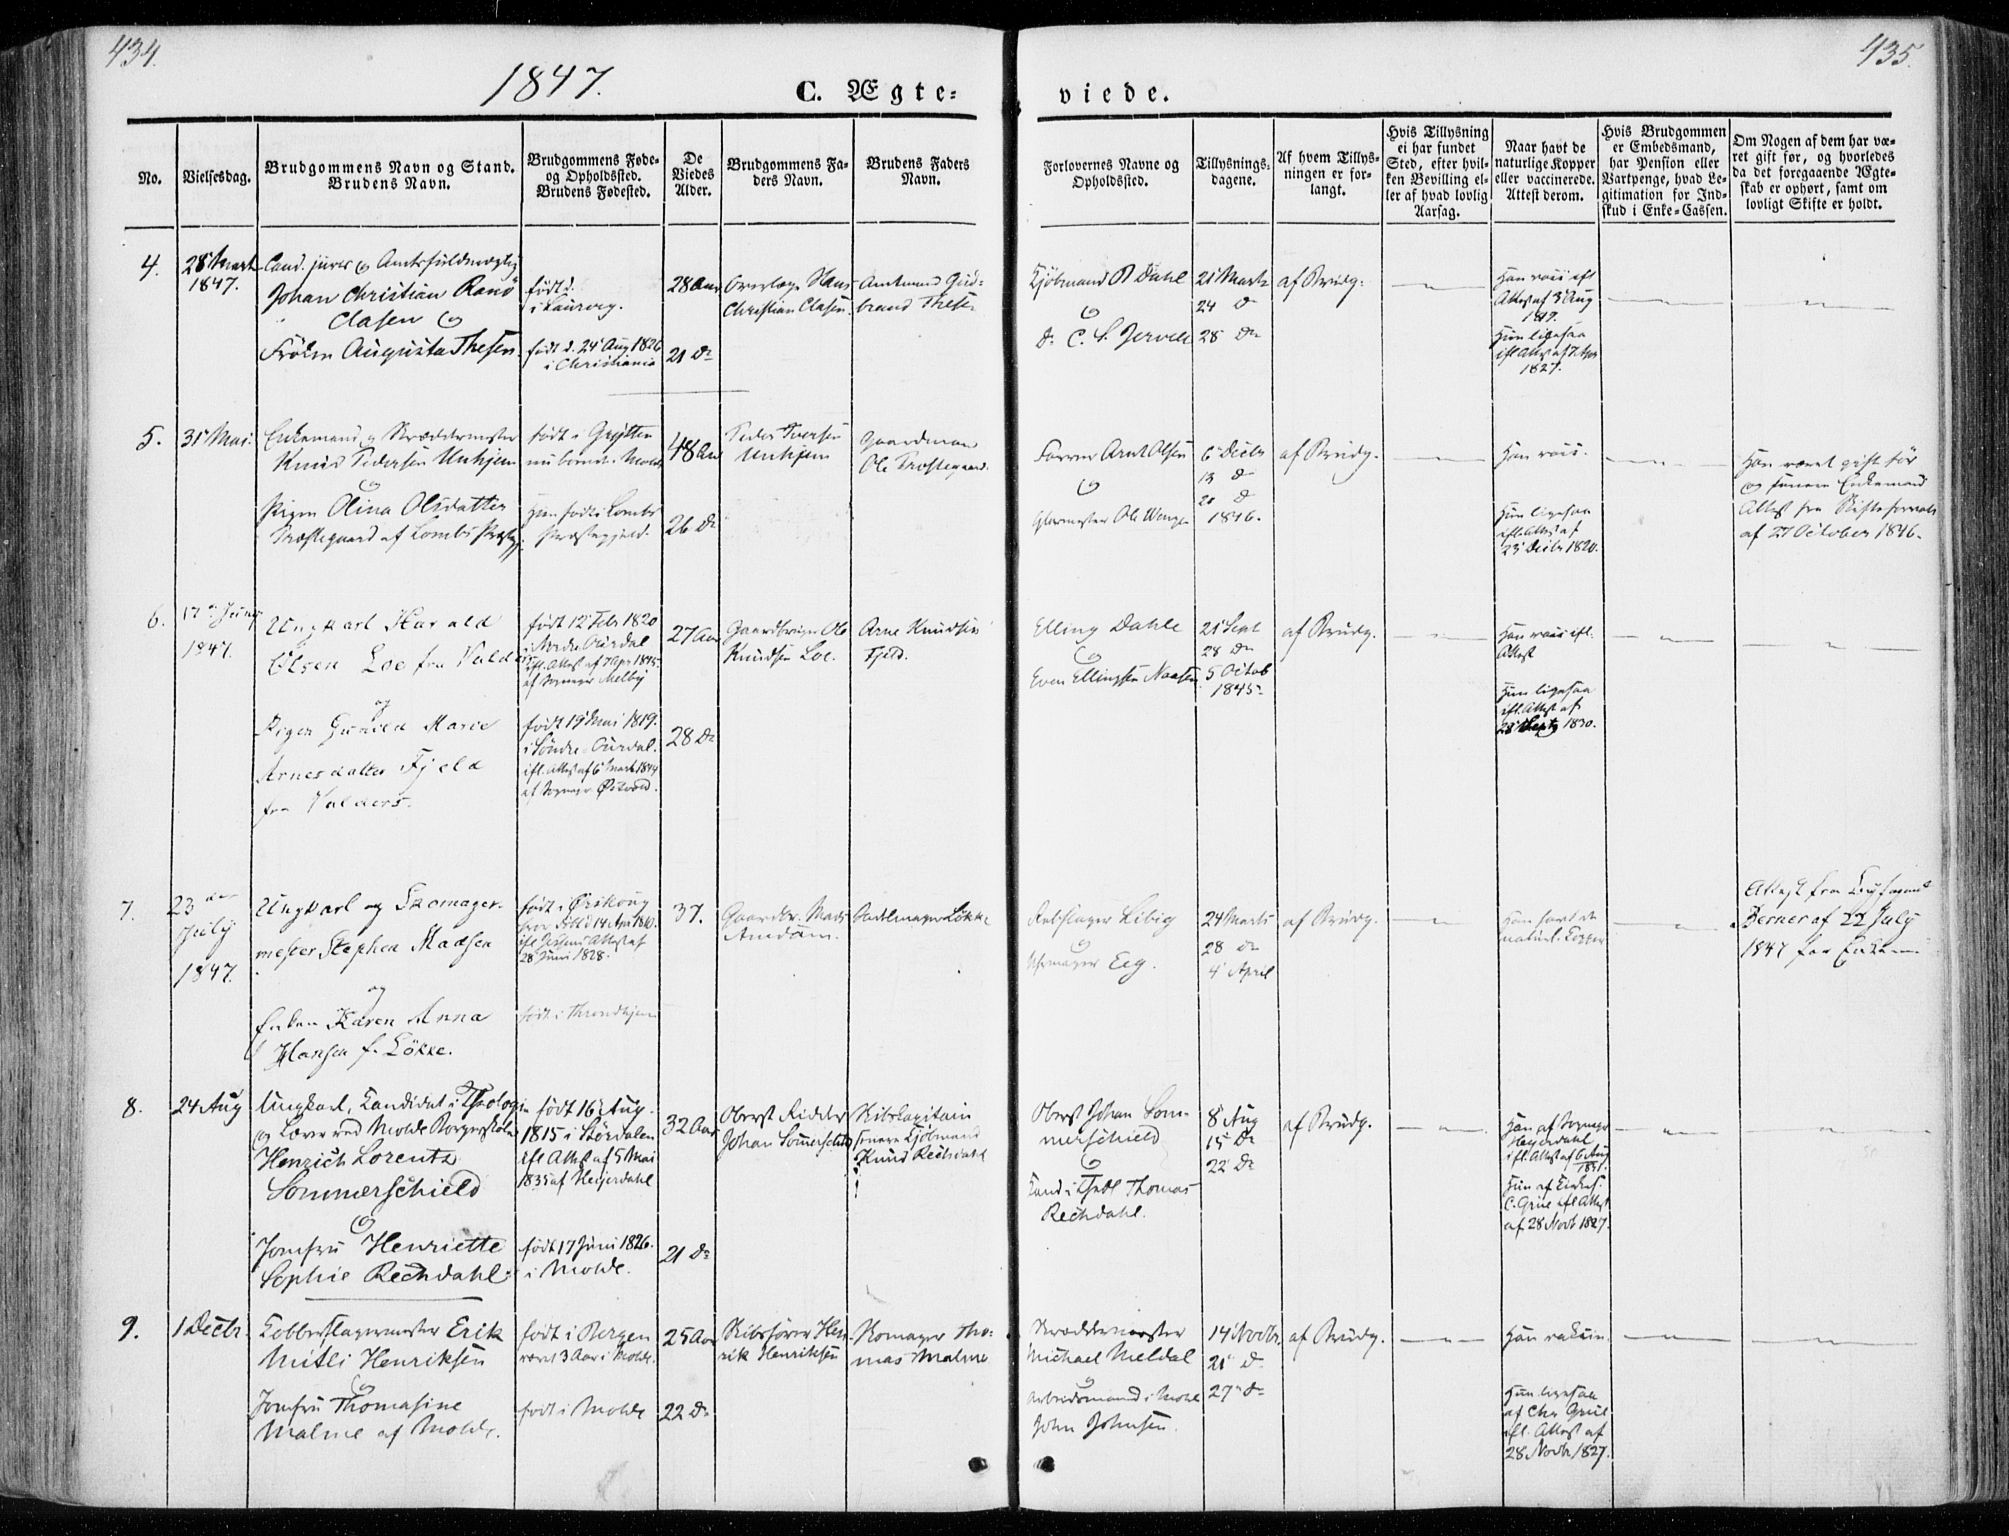 434.
435.
1847.
C. Ægte-
viede.
No.
Vielsesdag.
Brudgommens Navn og Stand.
Brudens Navn.
Brudgommens Føde-
og Opholdssted.
Brudens Fødested.
De
Viedes
Alder.
Brudgommens Fa-
ders Navn.
Brudens Faders
Navn.
Forlovernes Navne og
Opholdssted.
Tillysnings-
dagene.
Af hvem Tillys-
ningen er for-
langt.
Hvis Tillysning
ei har fundet
Sted, efter hvil-
ken Bevilling el-
ler af hvad lovlig
Aarsag.
Naar havt de
naturlige Kopper
eller vaccinerede.
Attest derom.
Hvis Brudgommen
er Embedsmand,
har Pension eller
Vartpenge, hvad Le-
gitimation for Ind-
skud i Enke-Cassen.
Om Nogen af dem har væ-
ret gift før, og hvorledes
da det foregaaende Ægte-
skab er ophørt, samt om
lovligt Skifte er holdt.
4.
28 Marts
1847.
Cand. juris & Amtsfuldmægtig
Johan Christian Ranø
Clasen &
Frøken Augusta Thesen.
født
i Laurvig.
født d. 24 Aug 1826
i Christiania
28 Aar
21 Do
Overlæge Hans
Christian Clasen.
Amtmand Gud-
brand Thesen
Kjøbmand P Dahl
&
Do C. S. Jervell
21 Marts
24 Do
28 Do
af Brudg.
Han vacc ifl
Attest af 3 Aug
Hun ligesaa
ifl Attest af
1827.
5.
31 Mai.
Enkemand & Skræddermester
Knud Pedersen Unhjem
&
Pigen Olina Olsdatter
Præstegaard af Lombs Præstegj.
født i Grytten
nu boende i Molde
Hun født i Lombs
Præstegjeld.
48 Aar
26 Do
Peder Iversen
Unhjem
Gaardmand
Ole Præstegaard.
Farver Arnt Olsen
&
Glarmester Ole Wenge
6 Decbr
13 Do
20 Do
1846.
af Brudg.
Han vacc.
Hun ligesaa
ifl. Attest af
23 Decbr 1820.
Han været gift før
og senere Enkemand
Attest fra Skifteforvalt
af 27 October 1846.
6.
17 Juny
1847.
Ungkarl Harald
Olsen Loe fra Valders
og
Pigen Gunild Marie
Arnesdatter Fjeld
fra Valders.
født 12 Febr 1820
i Nordre Ourdal
ifl. Attest af 7 Apr 1845
af Sognepr Melby
født 19 Mai 1819.
i Søndre Ourdal.
ifl. Attest af 6 Marts 1844
af Sognepr
27 Aar
28 Do
Gaardbruger Ole
Knudsen Loe.
Arne Knudsen
Fjeld.
Elling Dahle
&
Even Ellingsen Naasen
21 Sept
28 Do
5 Octob
1845
af Brudg.
Han vacc ifl.
Attest
Hun ligesaa
ifl. Attest af
1830.
7.
23 de
July
1847.
Ungkarl og Skomager-
mester Stephen Madsen
og
Enken Karen Anna
Hansen f. Løkke.
født i Ørskoug
ifl Attest af
28 Juni 1828.
født i Throndhjem
37.
Gaardbr. Mads
Amdam.
Sadelmager Løkke
Rebslager Libig
&
Uhrmager Eeg.
24 Marts
28 Do
4 April
af Brudg.
Han havt de
naturl. Kopper
Attest fra Byfogend
Berner af 22 July
1847 for Enken
8.
24 Aug
Ungkarl, Candidat i Theologie
og Lærer ved Molde Borgerskole
Henrich Lorentz
Sommerschield
&
Jomfru Henriette
Sophie Rechdahl.
født 16 Aug.
1815 i Størdalen
ifl Attest af 5 Mai
1835 af Heyerdahl
født 17 Juni 1826.
i Molde.
32 Aar
21 Do
Oberst Ridder
Johan Sommerschield
Skibskapitain
senere Kjøbmand
Knud Rechdahl
Oberst Johan Som-
merschield
&
Cand i Theol Thomas
Rechdahl.
8 Aug
15 Do
22 Do
af Brudg.
Han af Sognepr
Heyerdahl
ifl. Attest af 6 Aug
Hun af
C. Grüe ifl Attest
af 28 Novb 1827.
9.
1 Decbr.
Kobberslagermester Erik
Mitli Henriksen
&
Jomfru Thomasine
Malme af Molde.
født i Bergen
været 3 Aar i Molde.
født i Molde
25 Aar
22 Do
Skibsfører Hen-
rik Henriksen
Skomager Tho-
mas Malme
Skræddermester
Michael Meldal
&
Arbeidsmand i Molde
John Johnsen.
14 Novbr.
21 Do
27 Do
af Brudg.
Han vakcin.
Hun ligesaa
af Chr Grüe
ifl. Attest af
28 Novb 1827.